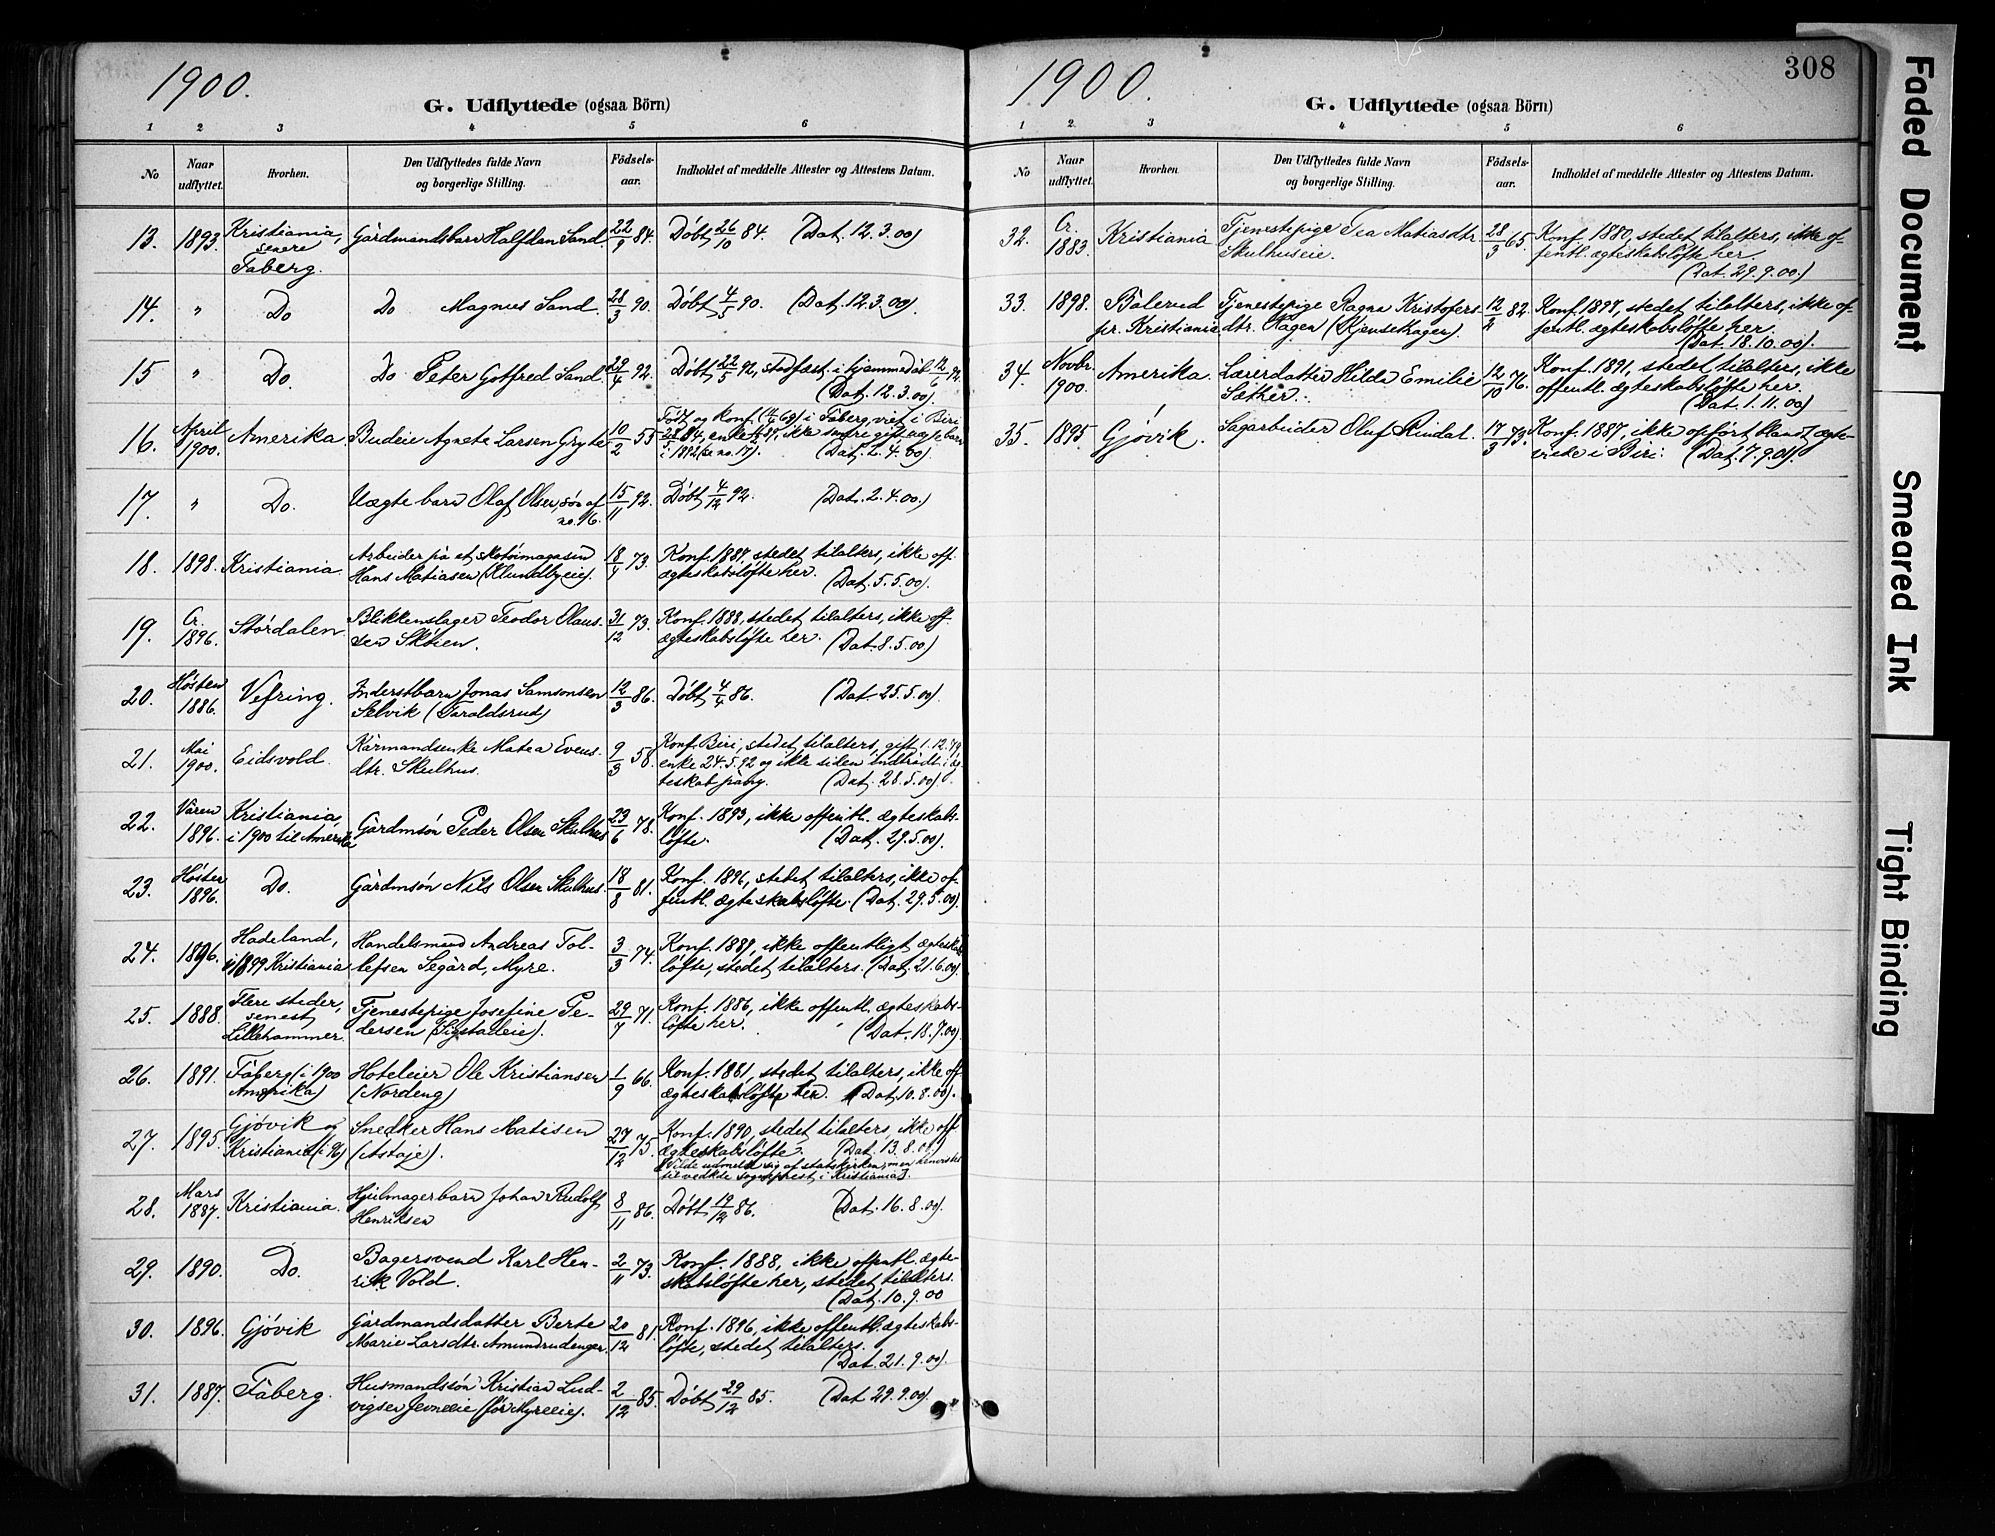 1900.
G. Udflyttede (ogsaa Börn)
1 2 3 4 5 6
No
Naar udflyttet.
Hvorhen.
Den Udflyttedes fulde Navn og borgerlige Stilling.
Födsels-aar.
Indholdet af meddelte Attester og Attestens Datum.
13. 1893. Kristiania, senere Fåberg. Gårdmandsbarn Halfdan Sand 22/9 84. Døbt 26/10 84. (Dat. 12.3.00)
14. " Do Do Magnus Sand. 28/3 90. Døbt 4/5 90. (Dat. 12.3.00).
15 " Do. Do Peter Gotfred Sand. 29/4 92. Døbt 22/5 92, stadfæst. i hjemmedåb 12/6 92.
(Dat. 12.3.00).
16. April 1900. Amerika. Budeie Agnete Larsen Gryte 10/2 55 Født og konf. i Fåberg, viet i Biri
(Dat. 2.4.00)
17. " Do. Uægte barn Olaf Olsen, søn af no. 16. 15/11 92. Døbt 4/12 92. (Dat. 2.4.00.)
18. 1898. Kristiania. Arbeider på et skotøimagasin
Hans Matiasen 18/4 73. Konf. 1887, stedet tilalters, ikke off.
ægteskabsløfte her. (Dat. 5.5.00).
19. Cr. 1896. Stördalen Blikkenslager Teodor Olaus-
sen Skøien. 31/12 73. Konf. 1888, stedet tilalters, ikke off.
ægteskabsløfte her. (Dat. 8.5.00)
20. Høsten 1886. Vefring. Inderstbarn Jonas Samsonsen
Selvik (Taraldsrud) 12/3 86. Døbt 4/4 86. (Dat. 25.5.00).
21. Mai 1900. Eidsvold. Kårmandsenke Matea Evens-
dtr. Skulhus. 9/3 58. Konf. Biri, stedet tilalters, gift 1.12.79,
enke 24.5.92 og ikke siden indtrådt i æg-
teskab påny. (Dat. 28.5.00).
22. Våren 1896. Kristiania, i 1900 til Amerika Gårdmsøn Peder Olsen Skulhus 23/6 78. Konf. 1893, ikke offentl. ægteskabs-
løfte. (Dat. 29.5.00).
23. Høsten 1896. Do. Gårdmsøn Nils Olsen Skulhus. 18/8 81. Konf. 1896, stedet tilalters, ikke of-
fentl. ægteskabsløfte. (Dat. 29.5.00).
24. 1896. Hadeland, i 1899 Kristiania Handelsmand Andreas Tol-
lefsen Segård, Myre. 3/3 74. Konf. 1889, ikke offentligt ægteskabs
løfte, stedet tilalters. (Dat. 21.6.00).
25. 1888. Flere steder, senest Lillehammer. Tjenestepige Josefine Pe-
dersen (Sigstadeie). 29/7 71. Konf. 1886, ikke offentl. ægteskabs-
løfte her. (Dat. 18.7.00).
26. 1891. Fåberg (i 1900 Amerika) Hoteleier Ole Kristiansen
(Nordeng) 1/9 66. Konf. 1881, stedet tilalters, ikke off
ægteskabsløfte her. (Dat. 10.8.00).
27. 1895. Gjøvik og Kristiania Snedker Hans Matisen
27/12 75. Konf. 1890, stedet tilalters, ikke off
ægteskabsløfte. (Dat. 13.8.00)
(Vilde udmelde sig af statskirken, men henvistes
til vedkde sogneprest i Kristiania).
28. Mars 1887. Kristiania. Hjulmagerbarn Johan Rudolf
Henriksen 8/11 86. Døbt 19/12 86. (Dat. 16.8.00).
29. 1890. Do. Bagersvend Karl Hen-
rik Vold. 2/11 73. Konf. 1888, ikke offentl. ægte-
skabsløfte her, stedet tilalters.
(Dat. 10.9.00
30. 1896. Gjøvik Gårdmandsdatter Berte
Marie Larsdtr. Amundrudenger. 20/12 81. Konf. 1896, ikke offentl. ægteskabs-
løfte, stedet tilalters.
(Dat. 21.9.00).
31. 1887. Fåberg. Husmandssøn Kristian Lud-
vigsen Jevneeie (før Myreeie). 2/12 85. Døbt 29/12 85. (Dat 29.9.00).
1900.
308
G. Udflyttede (ogsaa Börn)
1 2 3 4 5 6
No
Naar udflyttet.
Hvorhen.
Den Udflyttedes fulde Navn og borgerlige Stilling.
Födsels-aar.
Indholdet af meddelte Attester og Attestens Datum.
32. Cr. 1883. Kristiania Tjenestepige Tea Matiasdtr.
Skulhuseie. 28/3 65. Konf. 1880, stedet tilalters, ikke of-
fentl. ægteskabsløfte her.
(Dat. 29.9.00.)
33. 1898. Bålerud pr. Kristiania Tjenestepige Ragna Kristofers-
dtr. Hagen 12/2 82. Konf. 1897, stedet tilalters, ikke of-
fentl. ægteskabsløfte her.
(Dat. 18.10.00).
34. Novbr. 1900. Amerika. Lærerdatter Hilda Emilie
Sæther. 12/10 76. Konf. 1891, stedet tilalters, ikke
offentl. ægteskabsløfte her.
(Dat. 1.11.00)
35. 1895. Gjøvik. Sagarbeider Oluf Rindal. 17/3 73. Konf. 1887, ikke opført blandt ægte-
viede i Biri. (Dat. 7.9.01).
Faded Document
Smeared Ink
Tight Binding